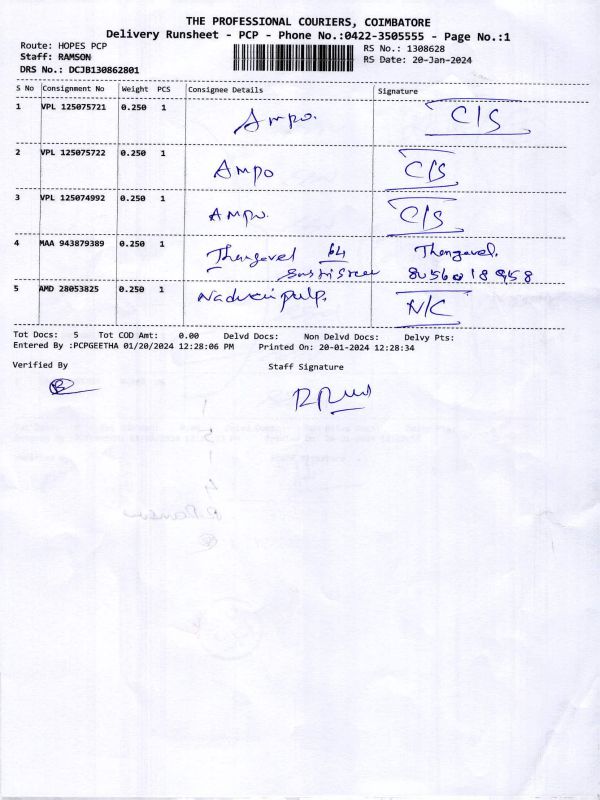 THE PROFESSIONAL COURIERS, COIMBATORE
Delivery Runsheet - PCP - Phone No.:0422-3505555 - Page No.:1
Route: HOPES PCP RS No.: 1308628
Staff: RAMSON RS Date: 20-Jan-2024
DRS No.: DCJB130862801
S No Consignment No Weight PCS Consignee Details Signature
1 VPL 125075721 0.250 1 Ampo. C/S
2 VPL 125075722 0.250 1 Ampo C/S
3 VPL 125074992 0.250 1 Ampo. C/S
4 MAA 943879389 0.250 1 Thangavel 64 Thangavel.
8056018958
5 AMD 28053825 0.250 1 N/C
Tot Docs: 5 Tot COD Amt: 0.00 Delvd Docs: Non Delvd Docs: Delvy Pts:
Entered By :PCPGEETHA 01/20/2024 12:28:06 PM Printed On: 20-01-2024 12:28:34
Verified By Staff Signature